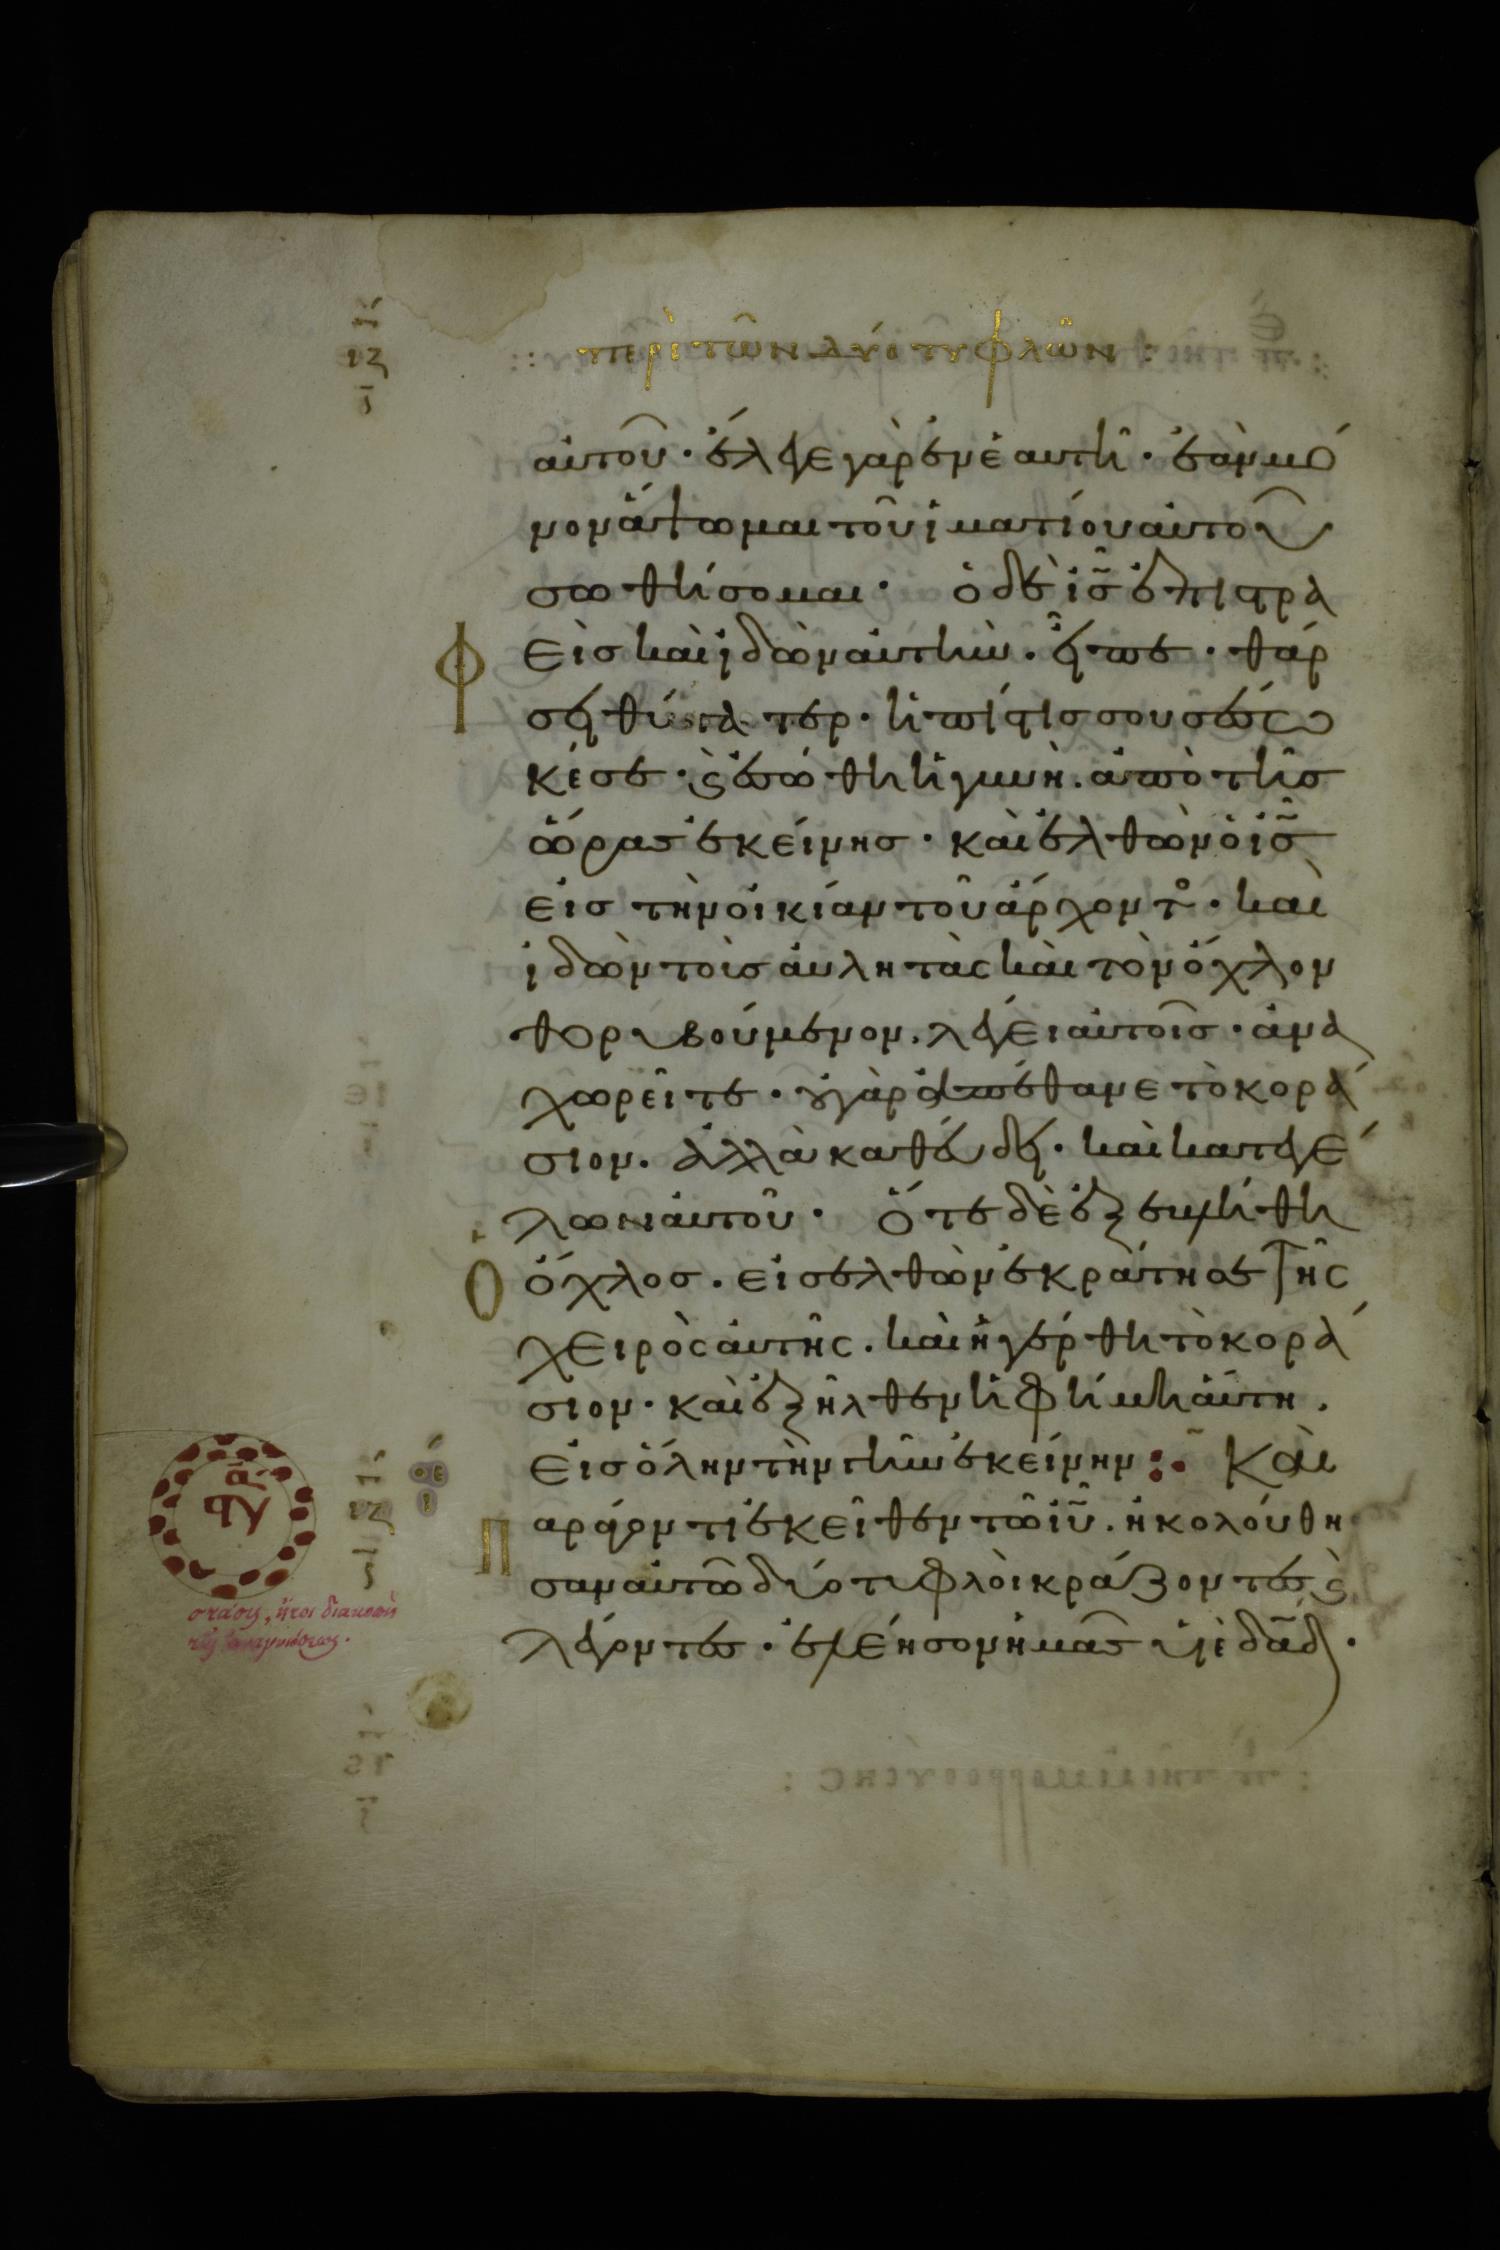 :: περὶ τῶν δύο τυφλῶν :
αὐτοῦ· ἔλεγε γὰρ ἐν ἑαυτῆ· ἐὰν μό
νον ἅψωμαι τοῦ ἱματίου αὐτοῦ
σωθήσομαι· ὁ δὲ ις̅ ἐπιστρα
Φ εὶς καὶ ἰδὼν αὐτὴν· εἶπε· θάρ
σει θύγατερ· ἡ πίστις σου σέσω
κέ σε· ϗ ἐσώθη ἡ γυνὴ. ἀπὸ τῆς
ὥρας ἐκείνης· καὶ ἐλθὼν ὁ ις̅
εἰς τὴν οἰκίαν τοῦ ἄρχοντος· καὶ
ἰδὼν τοὺς αὐλητὰς καὶ τὸν ὄχλον
θορυβούμενον. λέγει αὐτοῖς· ἀνα
χωρεῖτε· οὐ γὰρ ἀπέθανε τὸ κορά
σιον. ἀλλὰ καθεύδει· καὶ κατεγέ
λων αὐτοῦ· Ὅτε δὲ ἐξεβλήθη
Ὁ ὄχλος. εἰσελθὼν ἐκράτησε τῆς
χειρὸς αὐτῆς. καὶ ἠγέρθη τὸ κορά
σιον· καὶ ἐξῆλθεν ἡ φήμη αὕτη.
εἰς ὅλην τὴν γῆν ἐκείνην : Καὶ
Π αράγοντι ἐκεῖθεν τῶ ιυ̅. ἠκολούθη
σαν αὐτῶ δύο τυφλοὶ κράζοντες ϗ
λέγοντες· ἐλέησον ἡμᾶς υἱὲ δα̅δ·
ιζ
ιζ
στάσις, ἤτοι διακοπὴ
τῆς ἀναγνώσεως.